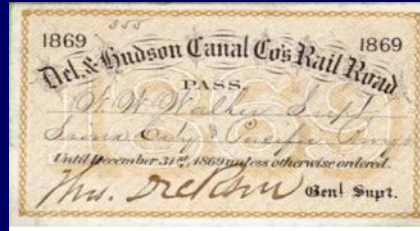 355
1869 1869
Del. & Hudson Canal Co's Rail Road
PASS
Walker Supt
Sioux City & Pacific
Until December 31st, 1869 unless otherwise ordered.
Thos. Dickson Genl Supt.